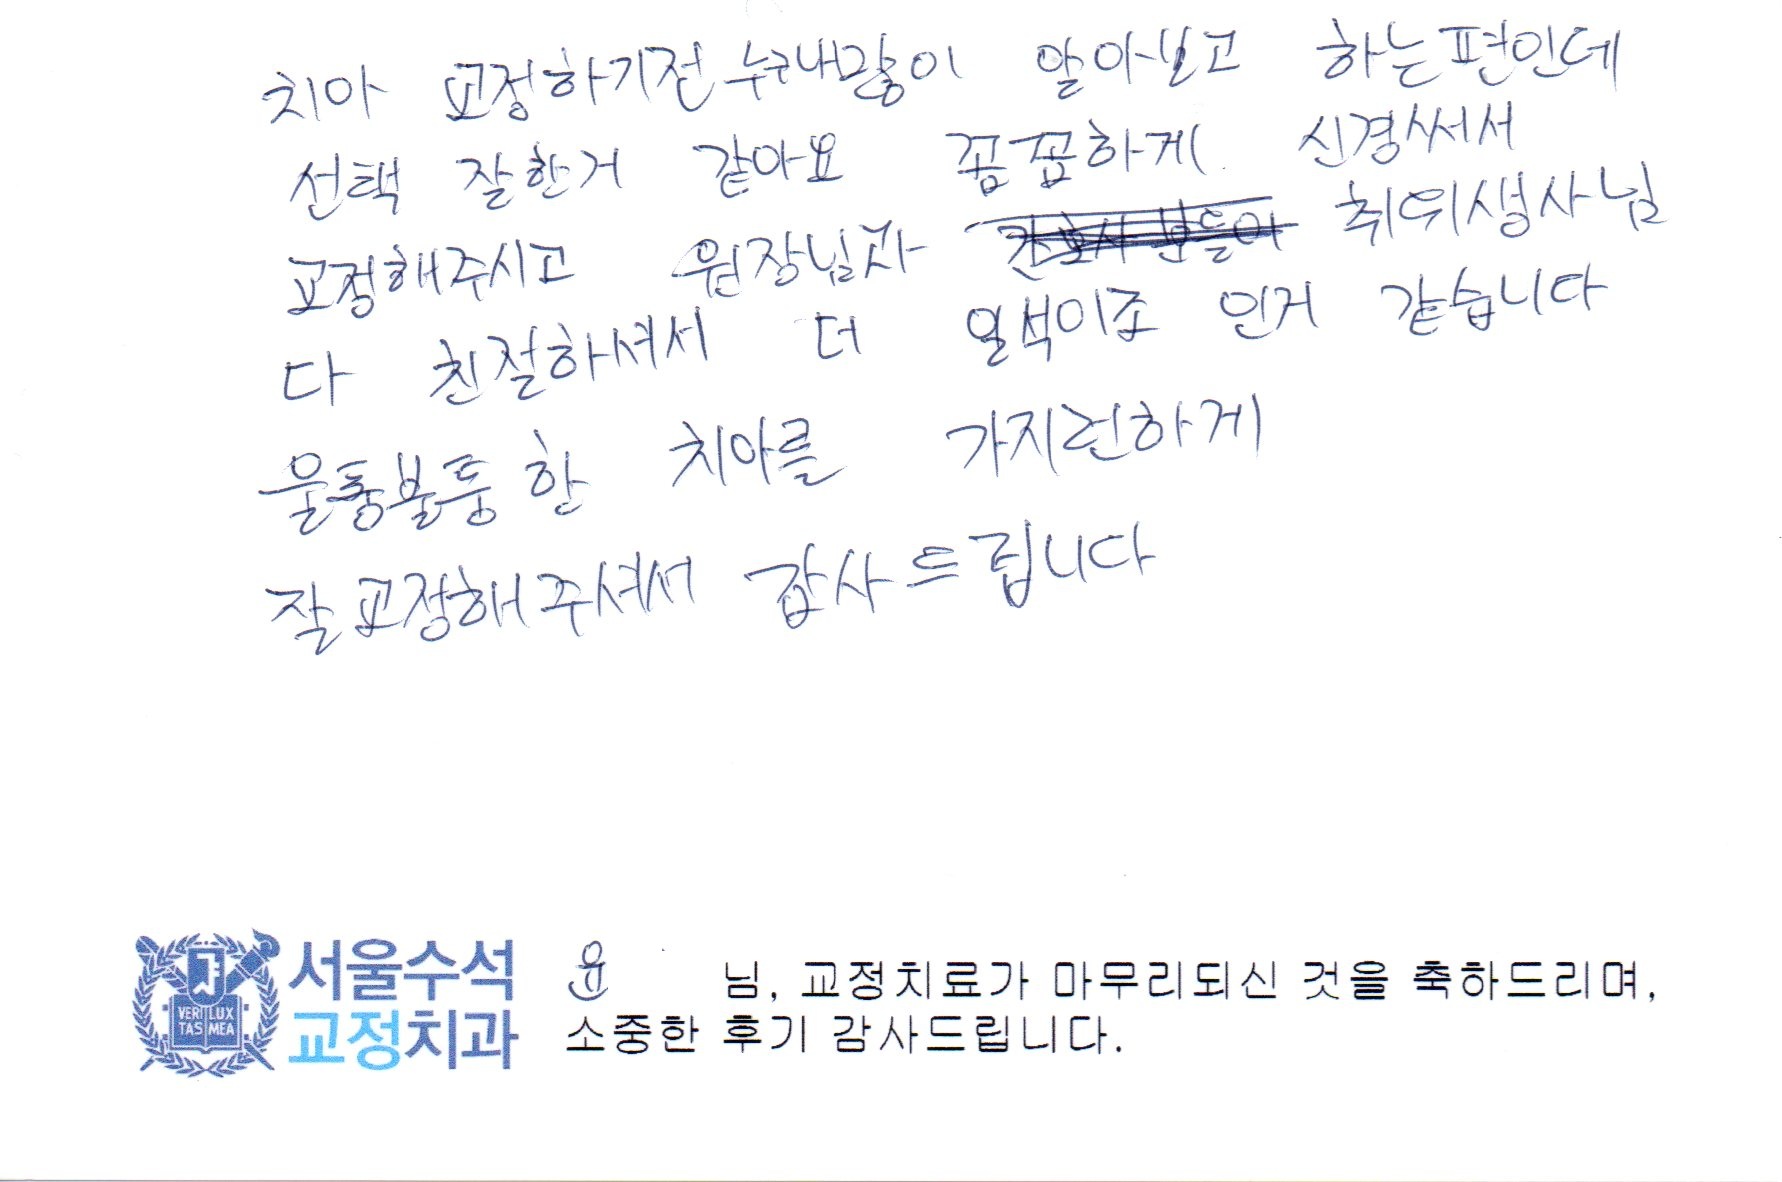 치아 교정하기전 누구보다많이 알아보고 하는편인데
선택 잘한거 같아요 꼼꼼하게 신경써서
교정해주시고 원장님과 취위생사님
다 친절하셔서 더 일석이조 인거 같습니다
울퉁불퉁한 치아를 가지런하게
잘교정해주셔서 감사드립니다
서울수석
교정치과
VERI LUX
TAS MEA
윤 님, 교정치료가 마무리되신 것을 축하드리며,
소중한 후기 감사드립니다.